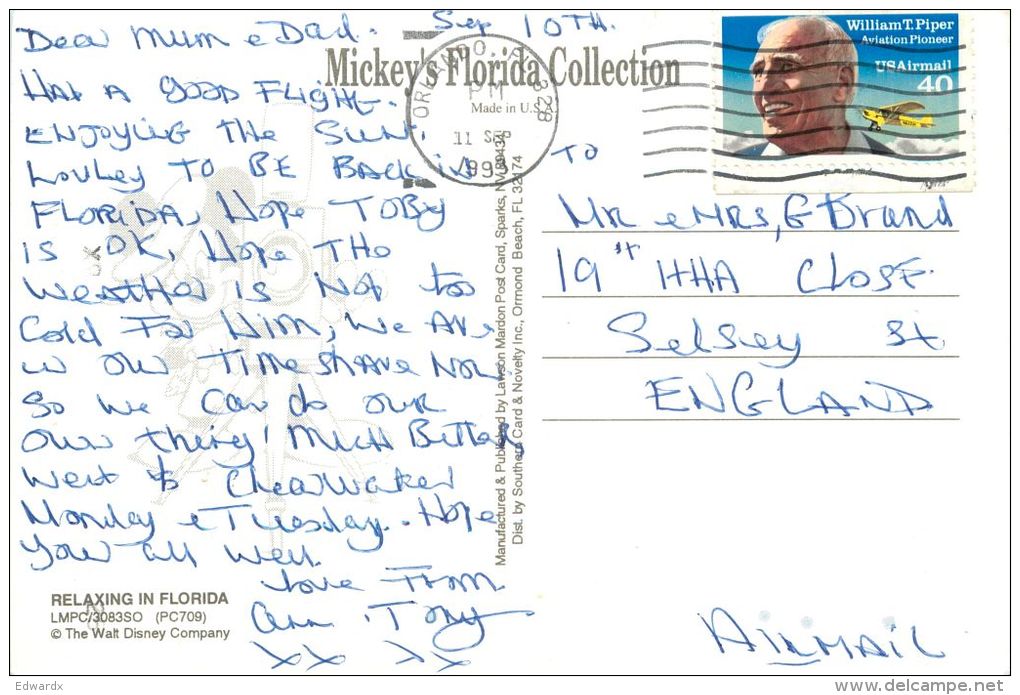 Dear Mum e Dad. Sep 10TH.
Mickey's Florida Collection
Made in U.S.A.
HAD A GOOD FLIGHT.
ENJOYING THE SUN.
LOVLEY TO BE BACK IN
FLORIDA, HOPE TOBY
IS OK, HOPE THE
WEATHER IS NOT too
Cold FOR HIM, WE ARE
IN OUR TIMESHARE NOW
So we Can do our
Own thing! MUCH BETTER,
Went to ClearWater
Monday e Tuesday. Hope
you all well.
love From
Ann. Tony
xx xx
RELAXING IN FLORIDA
LMPC/3083SO (PC709)
© The Walt Disney Company
Manufactured & Published by Lawson Mardon Post Card, Sparks, NV 89431
Dist. by Southern Card & Novelty Inc., Ormond Beach, FL 32174
ORLANDO, FL 328
PM
11 SEP
William T. Piper
Aviation Pioneer
USAirmail
40
TO
MR e MRS, G Brand
19 CLOSE
Selsey
ENGLAND
AIRMAIL
Edwardx
delcampe.net